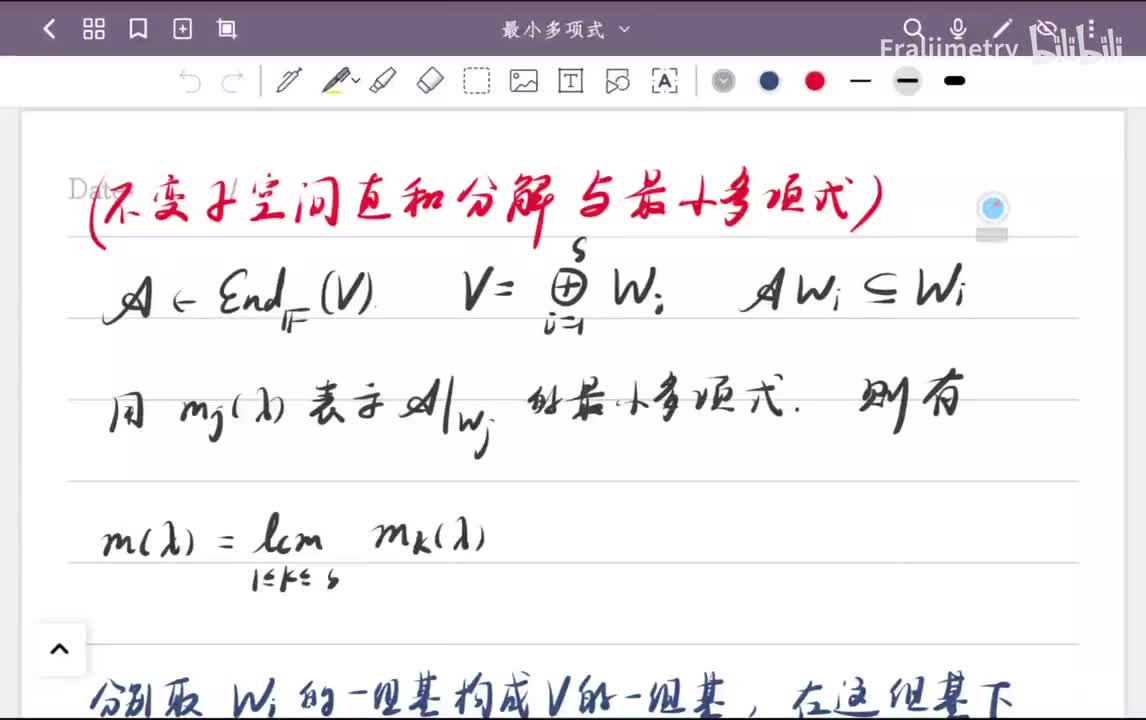 最小多项式
Fraljimetry bilibili
Date
(不变子空间直和分解与最小多项式)
𝒜 ∈ End_𝔽(V). V = ⊕_{i=1}^{s} W_i 𝒜W_i ⊆ W_i
用 m_j(λ) 表示 𝒜|_{W_j} 的最小多项式. 则有
m(λ) = lcm_{1≤k≤s} m_k(λ)
分别取 W_i 的一组基构成V的一组基, 在这组基下